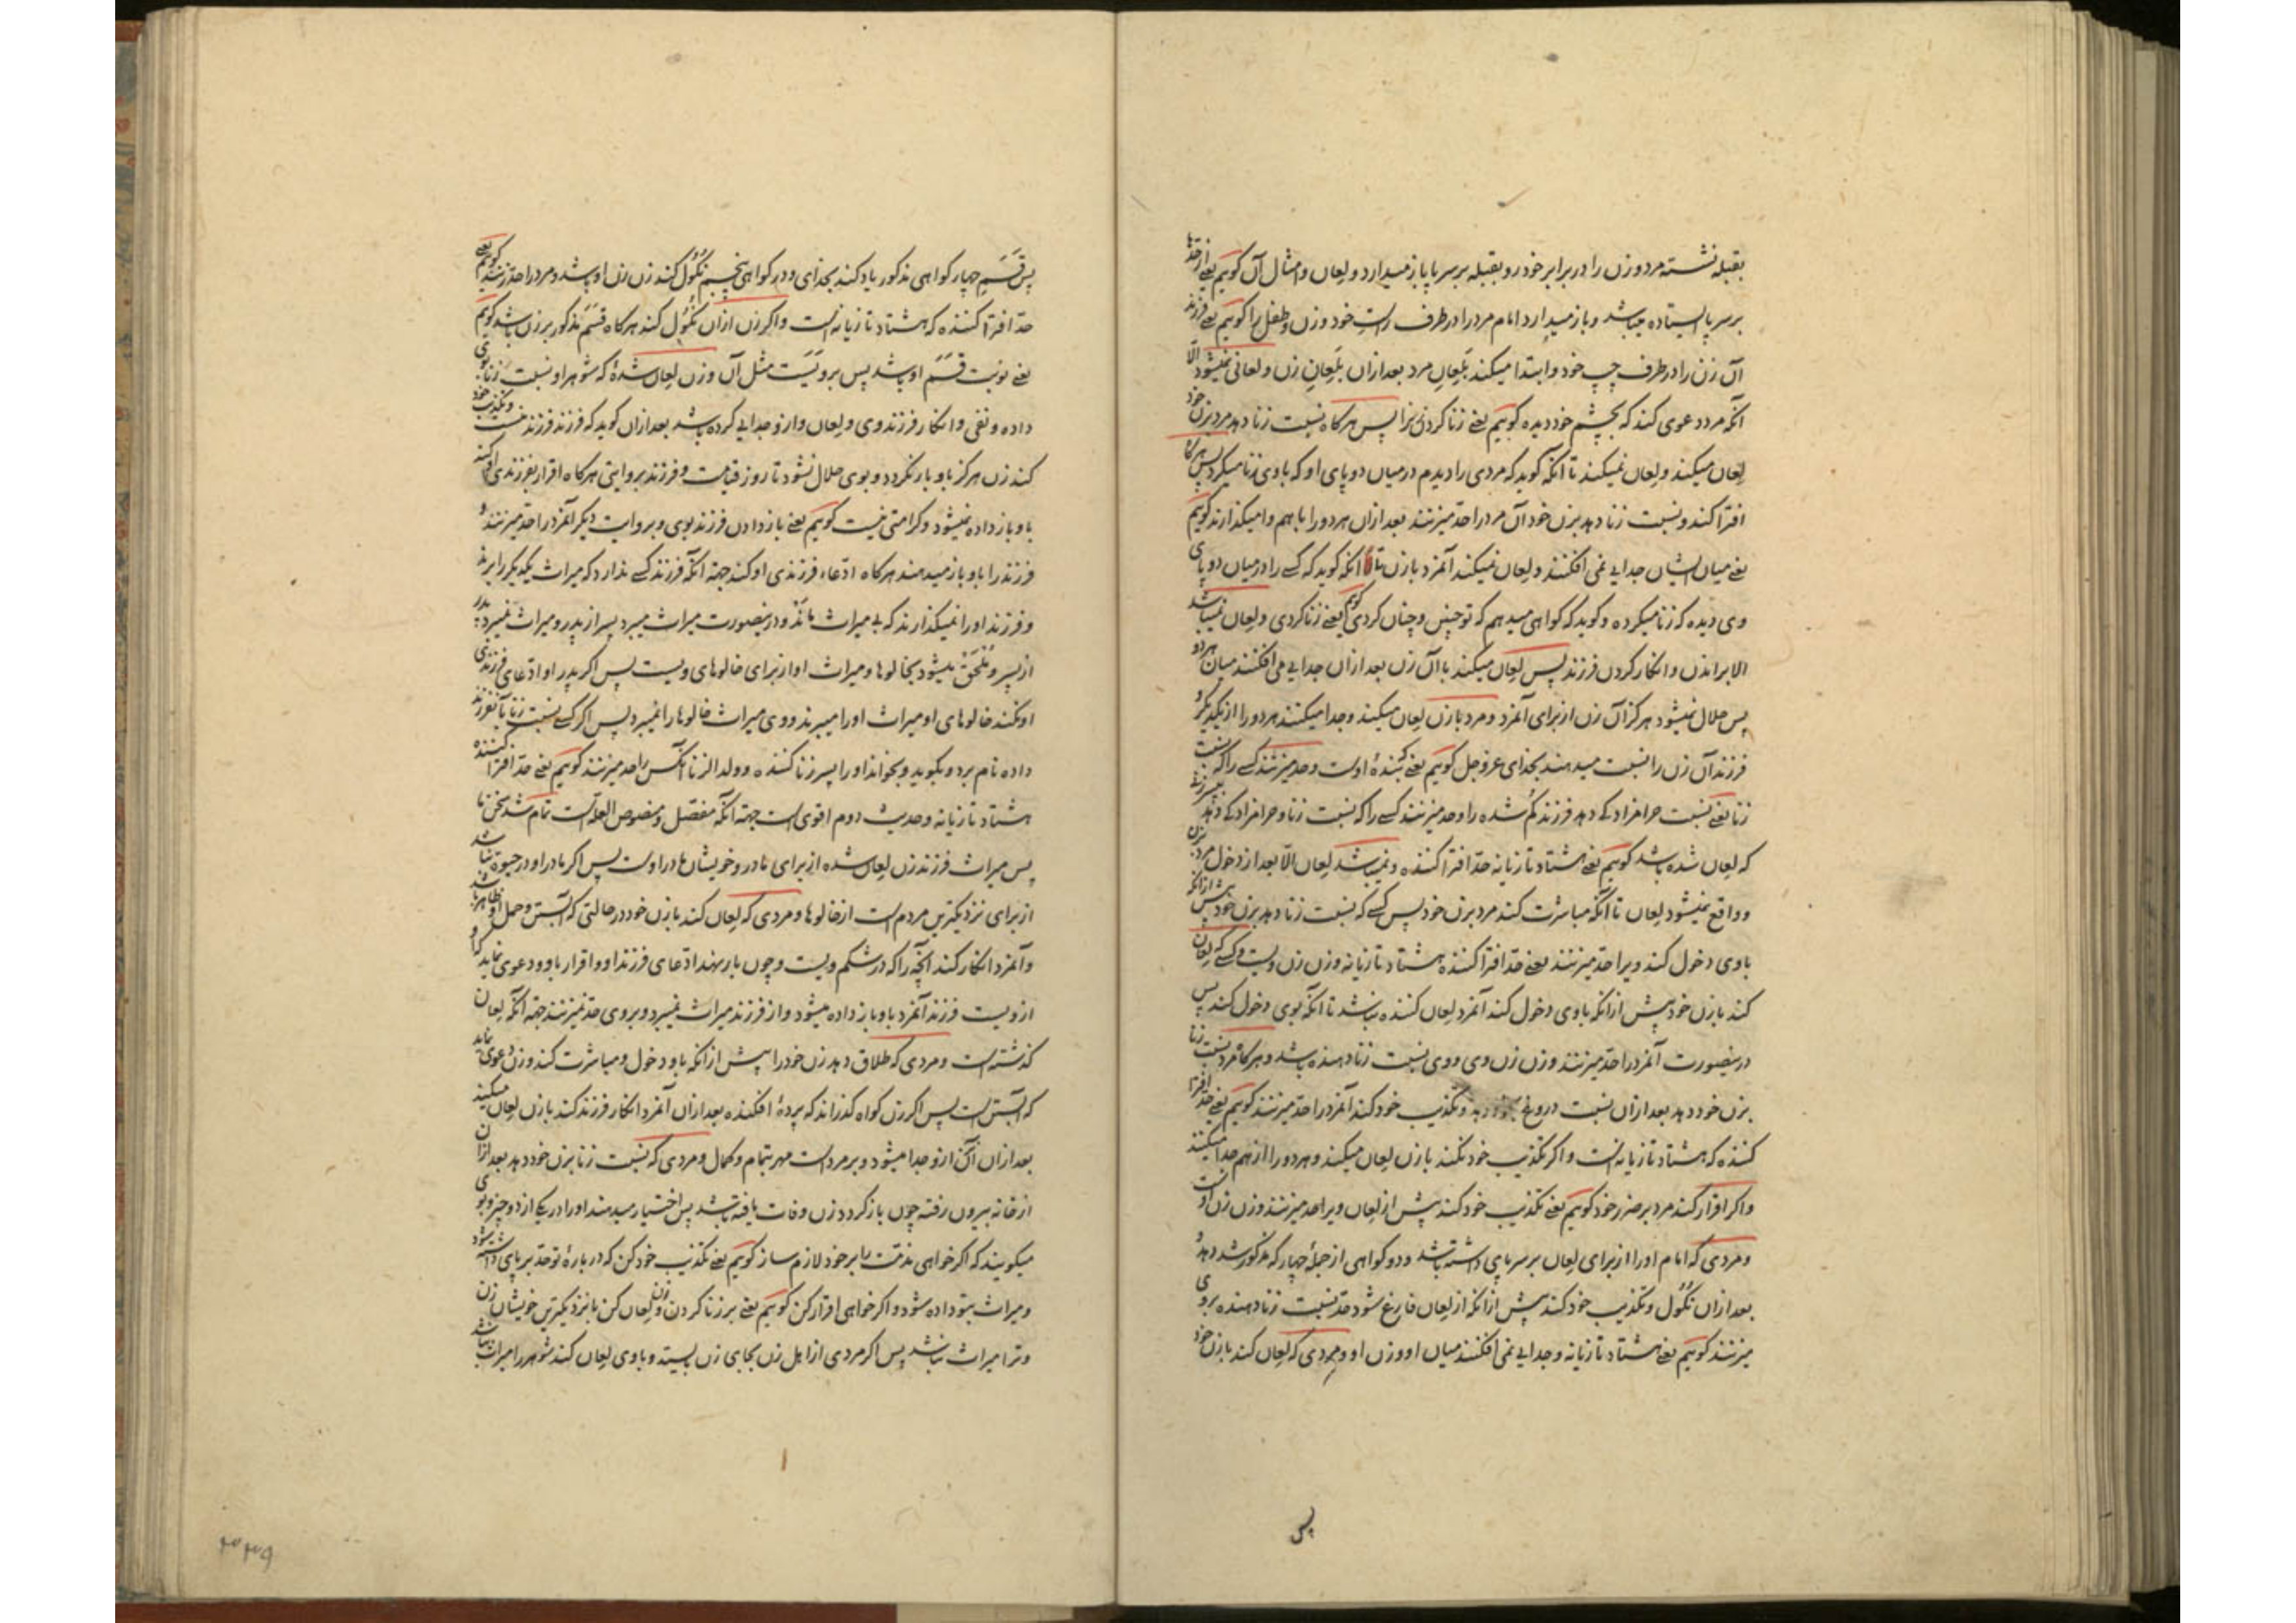 بقبله نشسته مرد و زن را در برابر خود رو بقبله بر سر پا باز میدارد و لعان و امثال آن کوئیم یعنی از حدها
بر سر پا ایستاده میباشد و باز میدارد امام مرد را در طرف راست خود و زن و طفل را کوئیم یعنی فرزند
آن زن را در طرف چپ خود و ابتدا میکند بلعان مرد بعد از ان بلعان زن و لعانی نمیشود الا
آنکه مرد دعوی کند که بچشم خود دیده کوئیم یعنی زنا کردن پس هرکاه نسبت زنا دهد مرد بزن خود
لعان میکند و لعان نمیکند تا آنکه کوید که مردی را دیدم در میان دو پای او که باوی زنا میکرد پس هرکاه
افترا کند و نسبت زنا دهد بزن خود آن مرد را حد میزنند بعد از ان هر دو را باهم وامیکذارند کوئیم
یعنی میان ایشان جدایی نمی افکنند و لعان نمیکند آنمرد بازن تا انکه کوید که کسے را در میان دو پای
وی دیده که زنا میکرده و کوید که کواهی میدهم که تو چنین و چنان کردی کوئیم یعنی زنا کردی و لعان نمیباشد
الا براندن و انکار کردن فرزند پس لعان میکند با آن زن بعد از ان جدایی می افکنند میان هر دو
پس حلال نمیشود هرکز آن زن از برای آنمرد و مرد بازن لعان میکند و جدا میکنند هر دو را از یکدیکر و
فرزند آن زن را نسبت میدهند بخدای عز و جل کوئیم یعنی بندهٔ اوست و حد میزنند کسے را که نسبت
زنا یعنی نسبت حرامزادکے دهد فرزند کم شده را و حد میزنند کسے را که نسبت زنا و حرامزادکے دهد
که لعان شده باشد کوئیم یعنی هشتاد تازیانه حد افترا کننده و نمیباشد لعان الا بعد از دخول مرد بزن
و واقع نمیشود لعان تا آنکه مباشرت کند مرد بزن خود پس کسے که نسبت زنا دهد بزن خود پیش از انکه
باوی دخول کند ویرا حد میزنند یعنی حد افترا کننده هشتاد تازیانه و زن زن ویست و کسے که لعان
کند بازن خود پیش از انکه باوی دخول کند آنمرد لعان کننده نباشد تا آنکه بوی دخول کند پس
درینصورت آنمرد را حد میزنند و زن زن وی و وی نسبت زنا دهنده باشد و هرکاه مرد نسبت زنا
بزن خود دهد بعد از ان نسبت دروغ و تکذیب خود کند آنمرد را حد میزنند کوئیم یعنی حد افترا
کننده که هشتاد تازیانه است و اکر تکذیب خود نکند بازن لعان میکند و هر دو را از هم جدا میکنند
و اکر اقرار کند مرد بر ضرر خود کوئیم یعنی تکذیب خود کند پیش از لعان ویرا حد میزنند و زن زن اوست
و مردی که امام او را از برای لعان بر سر پای داشته باشد و دو کواهی از جملهٔ چهار که مذکور شد دهد و
بعد از ان نکول و تکذیب خود کند پیش از انکه از لعان فارغ شود حد نسبت زنا دهنده بر وی
میزنند کوئیم یعنی هشتاد تازیانه و جدایی نمی افکنند میان او و زن او و مردی که لعان کند بازن خود
پس
پس قسم چهار کواهی مذکور یاد کند بخدای و در کواهی پنجم نکول کند زن زن او باشد و مرد را حد زنند کوئیم یعنی
حد افترا کننده که هشتاد تازیانه است و اکر زن از ان نکول کند هرکاه قسم مذکور بر زن باشد کوئیم
یعنی نوبت قسم او باشد پس برویست مثل آن و زن لعان شدهٔ که شوهر او نسبت زنا بوی
داده و نفی و انکار فرزند وی و لعان و از و جدایی کرده باشد بعد از ان کوید که فرزند فرزند منست و تکذیب خود
کند زن هرکز باو باز نکردد و بوی حلال نشود تا روز قیامت و فرزند بروایتی هرکاه اقرار بفرزندی او کند
باو باز داده نمیشود و کرامتی نیست کوئیم یعنی باز دادن فرزند بوی و بروایت دیکر آنمرد را حد میزنند و
فرزند را باو باز میدهند هرکاه ادعاء فرزندی او کند جهة آنکه فرزند کسے ندارد که میراث یکدیکر را برند
و فرزند او را نمیکذارند که بے میراث ماند و درینصورت میراث میبرد پسر از پدر و میراث نمیبرد پدر
از پسر و ملحق میشود بخالوها و میراث او از برای خالوهای ویست پس اکر پدر او ادعای فرزندی
او نکند خالوهای او میراث او را میبرند و وی میراث خالوها را نمیبرد پس اکر کسے نسبت زنا بآنفرزند
داده نام برد و بکوید و بخواند او را پسر زنا کننده و ولد الزنا آنکس را حد میزنند کوئیم یعنی حد افترا کننده
هشتاد تازیانه و حدیث دوم اقوی است جهة آنکه مفصل و منصوص العله است تمام شد سخن ما
پس میراث فرزند زن لعان شده از برای مادر و خویشان مادر اوست پس اکر مادر او در حیوة نباشد
از برای نزدیکترین مردم است از خالوها و مردی که لعان کند بازن خود در حالتی که آبستن و حمل او ظاهر باشد
و آنمرد انکار کند آنچه را که در شکم ویست و چون بار بنهد ادعای فرزند او و اقرار باو و دعوی نماید که او
از ویست فرزند آنمرد باو باز داده میشود و از فرزند میراث نمیبرد و بر وی حد نمیزنند جهة آنکه لعان
کذشته است و مردی که طلاق دهد زن خود را پیش از انکه باو دخول و مباشرت کند و زن دعوی نماید
که آبستن است پس اکر زن کواه کذراند که پردهٔ افکنده بعد از ان آنمرد انکار فرزند کند بازن لعان میکند
بعد از ان آن زن از و جدا میشود و بر مرد است مهر بتمام و کمال و مردی که نسبت زنا بزن خود دهد بعد از ان
از خانه بیرون رفته چون باز کردد زن وفات یافته باشد پس اختیار میدهند او را در یکے از دو چیز و بوی
میکویند که اکر خواهی مذمت را بر خود لازم ساز کوئیم یعنی تکذیب خود کن که در بارهٔ تو حد بر پای داشته شود
و میراث بتو داده شود و اکر خواهی اقرار کن کوئیم یعنی بر زنا کردن زن و لعان کن با نزدیکترین خویشان زن
و ترا میراث نباشد پس اکر مردی از اهل زن بجای زن بایستد و باوی لعان کند شوهر را میراث نباشد